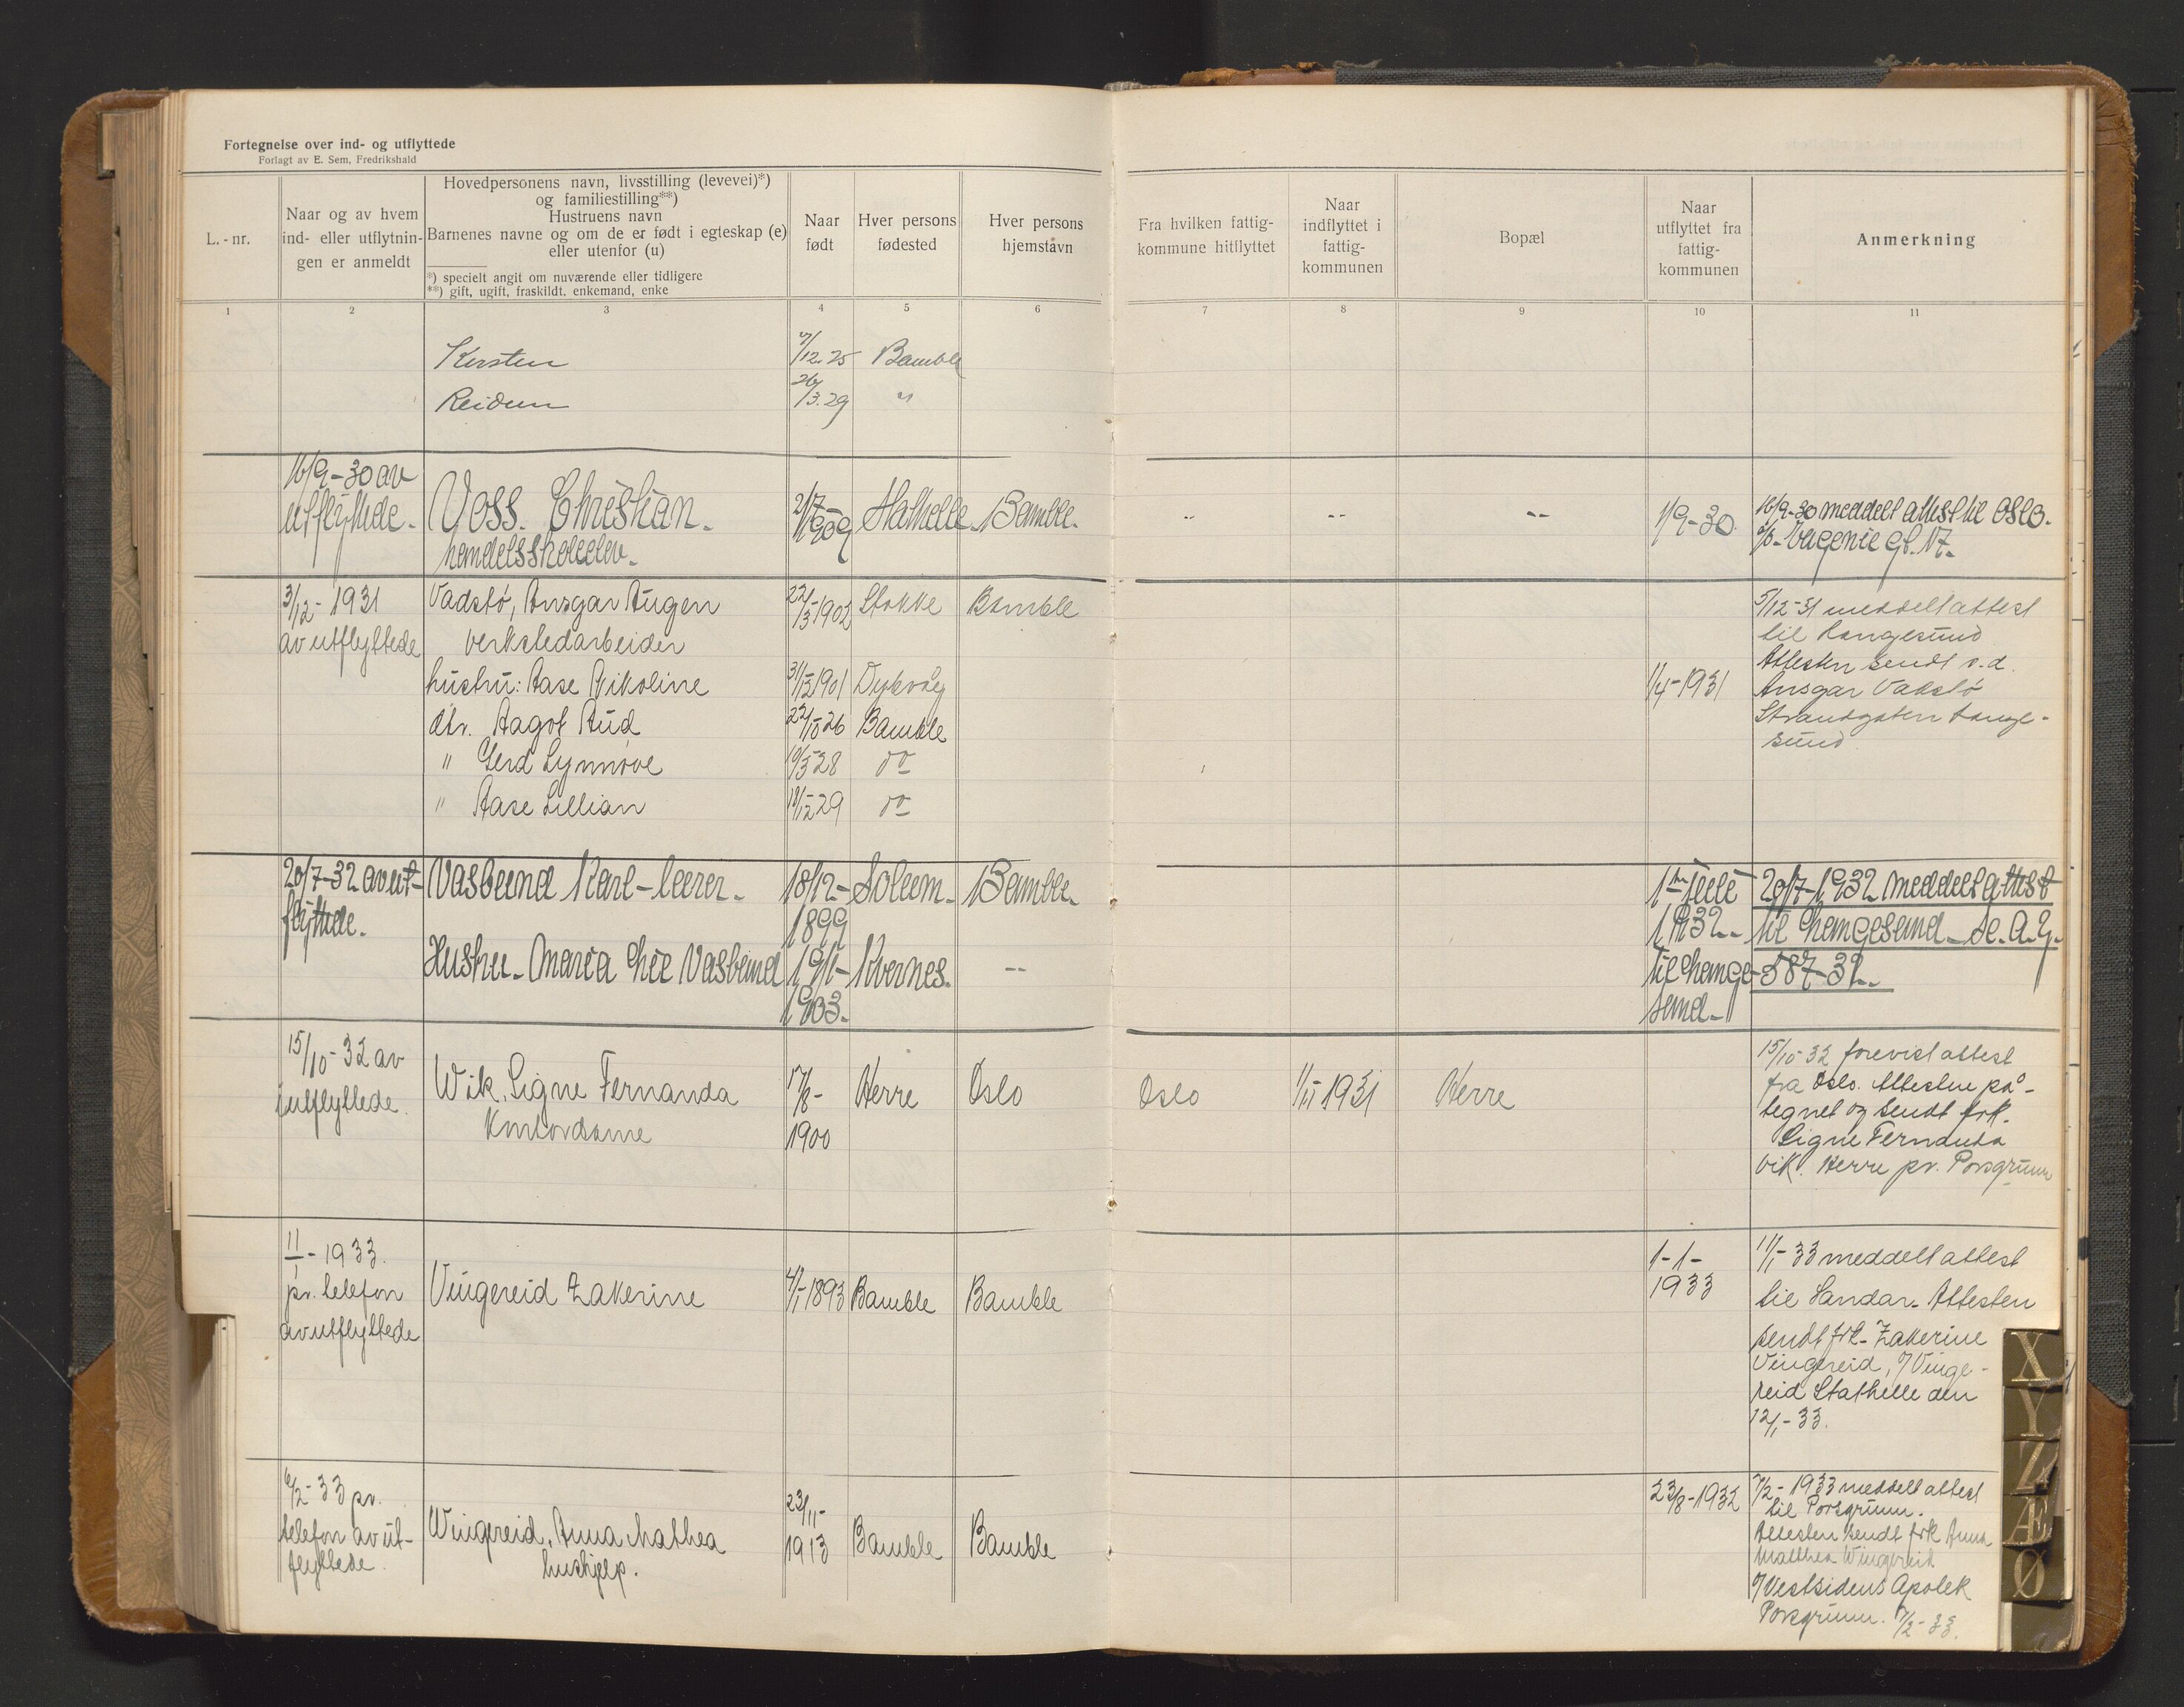 Fortegnelse over ind- og utflyttede
Forlagt av E. Sem, Fredrikshald
L.-nr.
Naar og av hvem
ind- eller utflytnin-
gen er anmeldt
Hovedpersonens navn, livsstilling (levevei)*)
og familiestilling**)
Hustruens navn
Barnenes navne og om de er født i egteskap (e)
eller utenfor (u)
*) specielt angit om nuværende eller tidligere
**) gift, ugift, fraskildt, enkemand, enke
Naar
født
Hver persons
fødested
Hver persons
hjemstavn
Fra hvilken fattig-
kommune hitflyttet
Naar
indflyttet i
fattig-
kommunen
Bopæl
Naar
utflyttet fra
fattig-
kommunen
Anmerkning
1 2 3 4 5 6 7 8 9 10 11
Kirsten 7/12.25 Bamble
Reidun 26/3.29 "
16/9-30 av
utflyttede.
Voss. Christian.
handelsskoleelev.
2/7-
1909
Stathelle. Bamble.
-- -- --
1/9-30.
16/9-30 meddelt attest til Oslo.
gt. 17.
3/12-1931
av utflyttede
Vadstø, Ansgar Augen
verkstedarbeider
22/3-1902 Stokke Bamble
hustru: Aase Nikoline 31/12-1901 Dypvåg
dtr. Aagot Aud 22/10-26 Bamble
" Gerd Synnøve 10/5-28 do
" Aase Lillian 18/12-29 do
1/4-1931
5/12-31 meddelt attest
til Langesund
Attesten sendt s.d.
Ansgar Vadstø
Strandgaten Lange-
sund
20/7-32 av ut-
flyttede.
Vasbund Karl - lærer. 18/12-
1899
Solum. Bamble.
Hustru - Maria Vasbund 19/11-
1903.
Kvernes. --
1ste juli
1932.
til Lange-
sund.
20/7-1932 meddelt attest
til Langesund
587-32.
15/10-32 av
innflyttede.
Wik, Signe Fernanda
Kontordame
17/8-
1900
Herre Oslo
Oslo 1/11 1931 Herre
15/10-32 forevist attest
fra Oslo. Attesten på-
tegnet og sendt frk.
Signe Fernanda
Vik. Herre pr. Porsgrunn
11/1-1933.
pr. telefon
av utflyttede
Vingereid Zakerine 4/1-1893 Bamble Bamble
1-1-
1933
11/1-33 meddelt attest
til Sandar. Attesten
sendt frk. Zakerine
Vingereid, c/ Vinge-
reid Stathelle den
12/1-33.
6/2-33 pr.
telefon av ut-
flyttede.
Wingereid, Anna Mathea
hushjelp.
23/11-
1913
Bamble Bamble
23/8-1932
7/2-1933 meddelt attest
til Porsgrunn.
Attesten sendt frk Anna
Mathea Wingereid
c/ Vestsidens Apotek
Porsgrunn. 7/2-33.
X
Y
Z
Æ
Ø